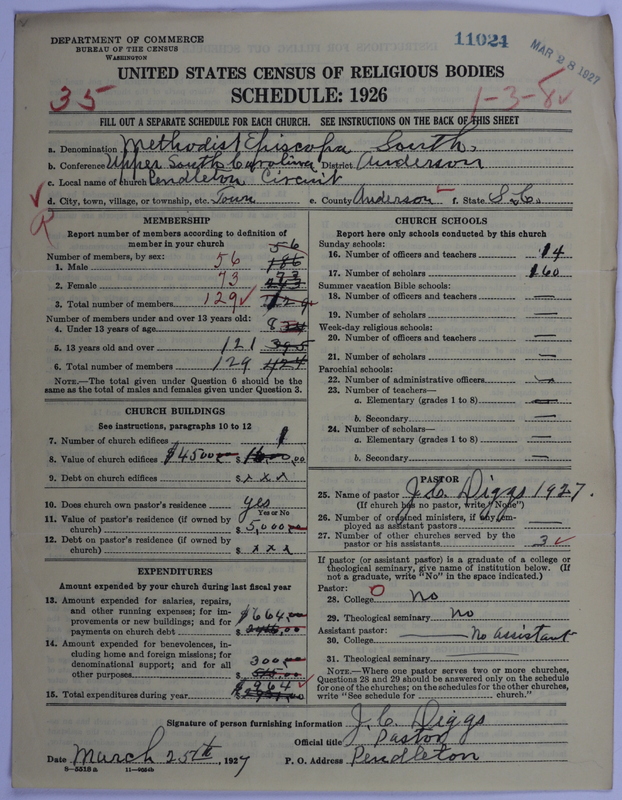 DEPARTMENT OF COMMERCE
BUREAU OF THE CENSUS
WASHINGTON
11024
MAR 28 1927
UNITED STATES CENSUS OF RELIGIOUS BODIES
SCHEDULE: 1926
35
1-3-8
FILL OUT A SEPARATE SCHEDULE FOR EACH CHURCH. SEE INSTRUCTIONS ON THE BACK OF THIS SHEET
a. Denomination Methodist Episcopa South.
b. Conference Upper South Carolina District Anderson
c. Local name of church Pendleton Circuit
d. City, town, village, or township, etc. Town e. County Anderson f. State S.C.
R
MEMBERSHIP
Report number of members according to definition of
member in your church
Number of members, by sex: 56
1. Male 56 186
2. Female 73 73
3. Total number of members 129 129
Number of members under and over 13 years old:
4. Under 13 years of age 8
5. 13 years old and over 121 395
6. Total number of members 129 424
NOTE.—The total given under Question 6 should be the
same as the total of males and females given under Question 3.
CHURCH BUILDINGS
See instructions, paragraphs 10 to 12
7. Number of church edifices 1
8. Value of church edifices $4500 $ .00
9. Debt on church edifices $ x x x
10. Does church own pastor's residence yes
Yes or No
11. Value of pastor's residence (if owned by
church) $ 5,000
12. Debt on pastor's residence (if owned by
church) $ x x x
EXPENDITURES
Amount expended by your church during last fiscal year
13. Amount expended for salaries, repairs,
and other running expenses; for im-
provements or new buildings; and for
payments on church debt $664 $ .00
14. Amount expended for benevolences, in-
cluding home and foreign missions; for
denominational support; and for all
other purposes 300 $ .00
15. Total expenditures during year $964 $ .00
CHURCH SCHOOLS
Report here only schools conducted by this church
Sunday schools:
16. Number of officers and teachers 14
17. Number of scholars 160
Summer vacation Bible schools:
18. Number of officers and teachers —
19. Number of scholars —
Week-day religious schools:
20. Number of officers and teachers —
21. Number of scholars —
Parochial schools:
22. Number of administrative officers —
23. Number of teachers—
a. Elementary (grades 1 to 8) —
b. Secondary —
24. Number of scholars—
a. Elementary (grades 1 to 8) —
b. Secondary —
PASTOR
25. Name of pastor J. C. Diggs 1927.
(If church has no pastor, write "None")
26. Number of ordained ministers, if any, em-
ployed as assistant pastors —
27. Number of other churches served by the
pastor or his assistants 3
If pastor (or assistant pastor) is a graduate of a college or
theological seminary, give name of institution below. (If
not a graduate, write "No" in the space indicated.)
Pastor:
28. College No
29. Theological seminary No
Assistant pastor:
30. College — No assistant
31. Theological seminary
NOTE.—Where one pastor serves two or more churches,
Questions 28 and 29 should be answered only on the schedule
for one of the churches; on the schedules for the other churches,
write "See schedule for church."
Signature of person furnishing information J. C. Diggs
Official title Pastor
Date March 25th, 1927 P. O. Address Pendleton
8—5518a 11—9264b